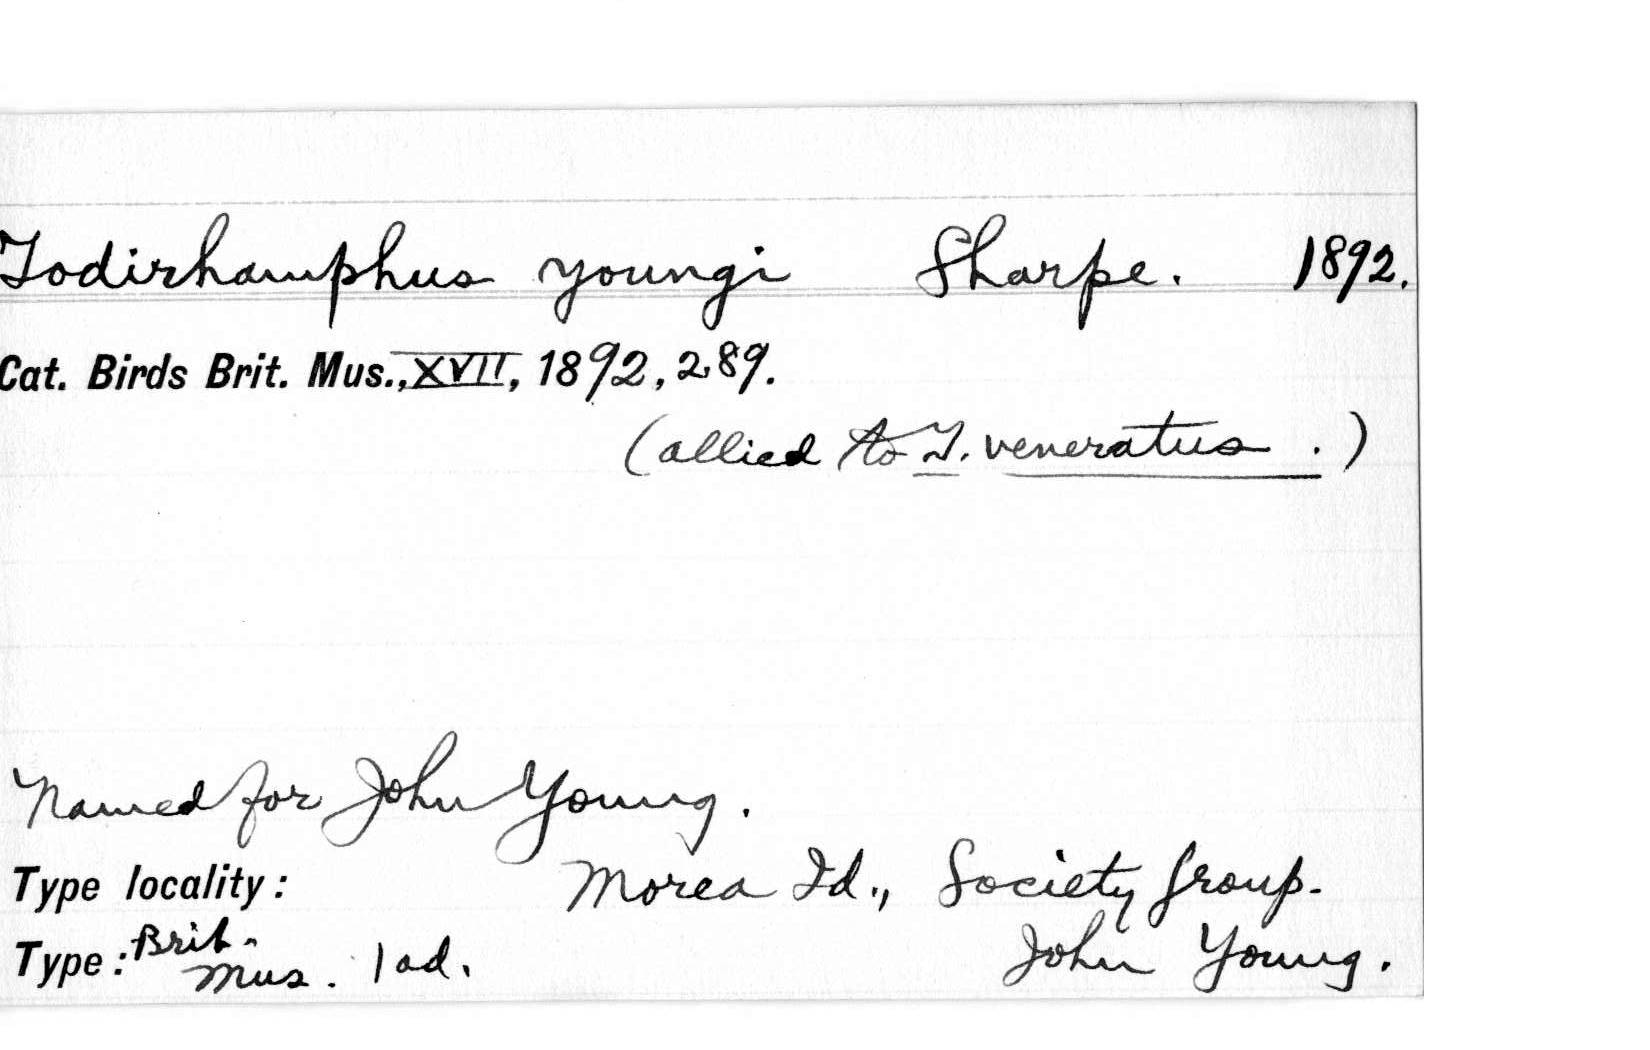 Todirhamphus youngi Sharpe. 1892.
Cat. Birds Brit. Mus., XVII, 1892, 289.
(allied to T. veneratus.)
Named for John Young.
Type locality: Morea Id., Society Group.
Type: Brit. Mus. 1 ad. John Young.